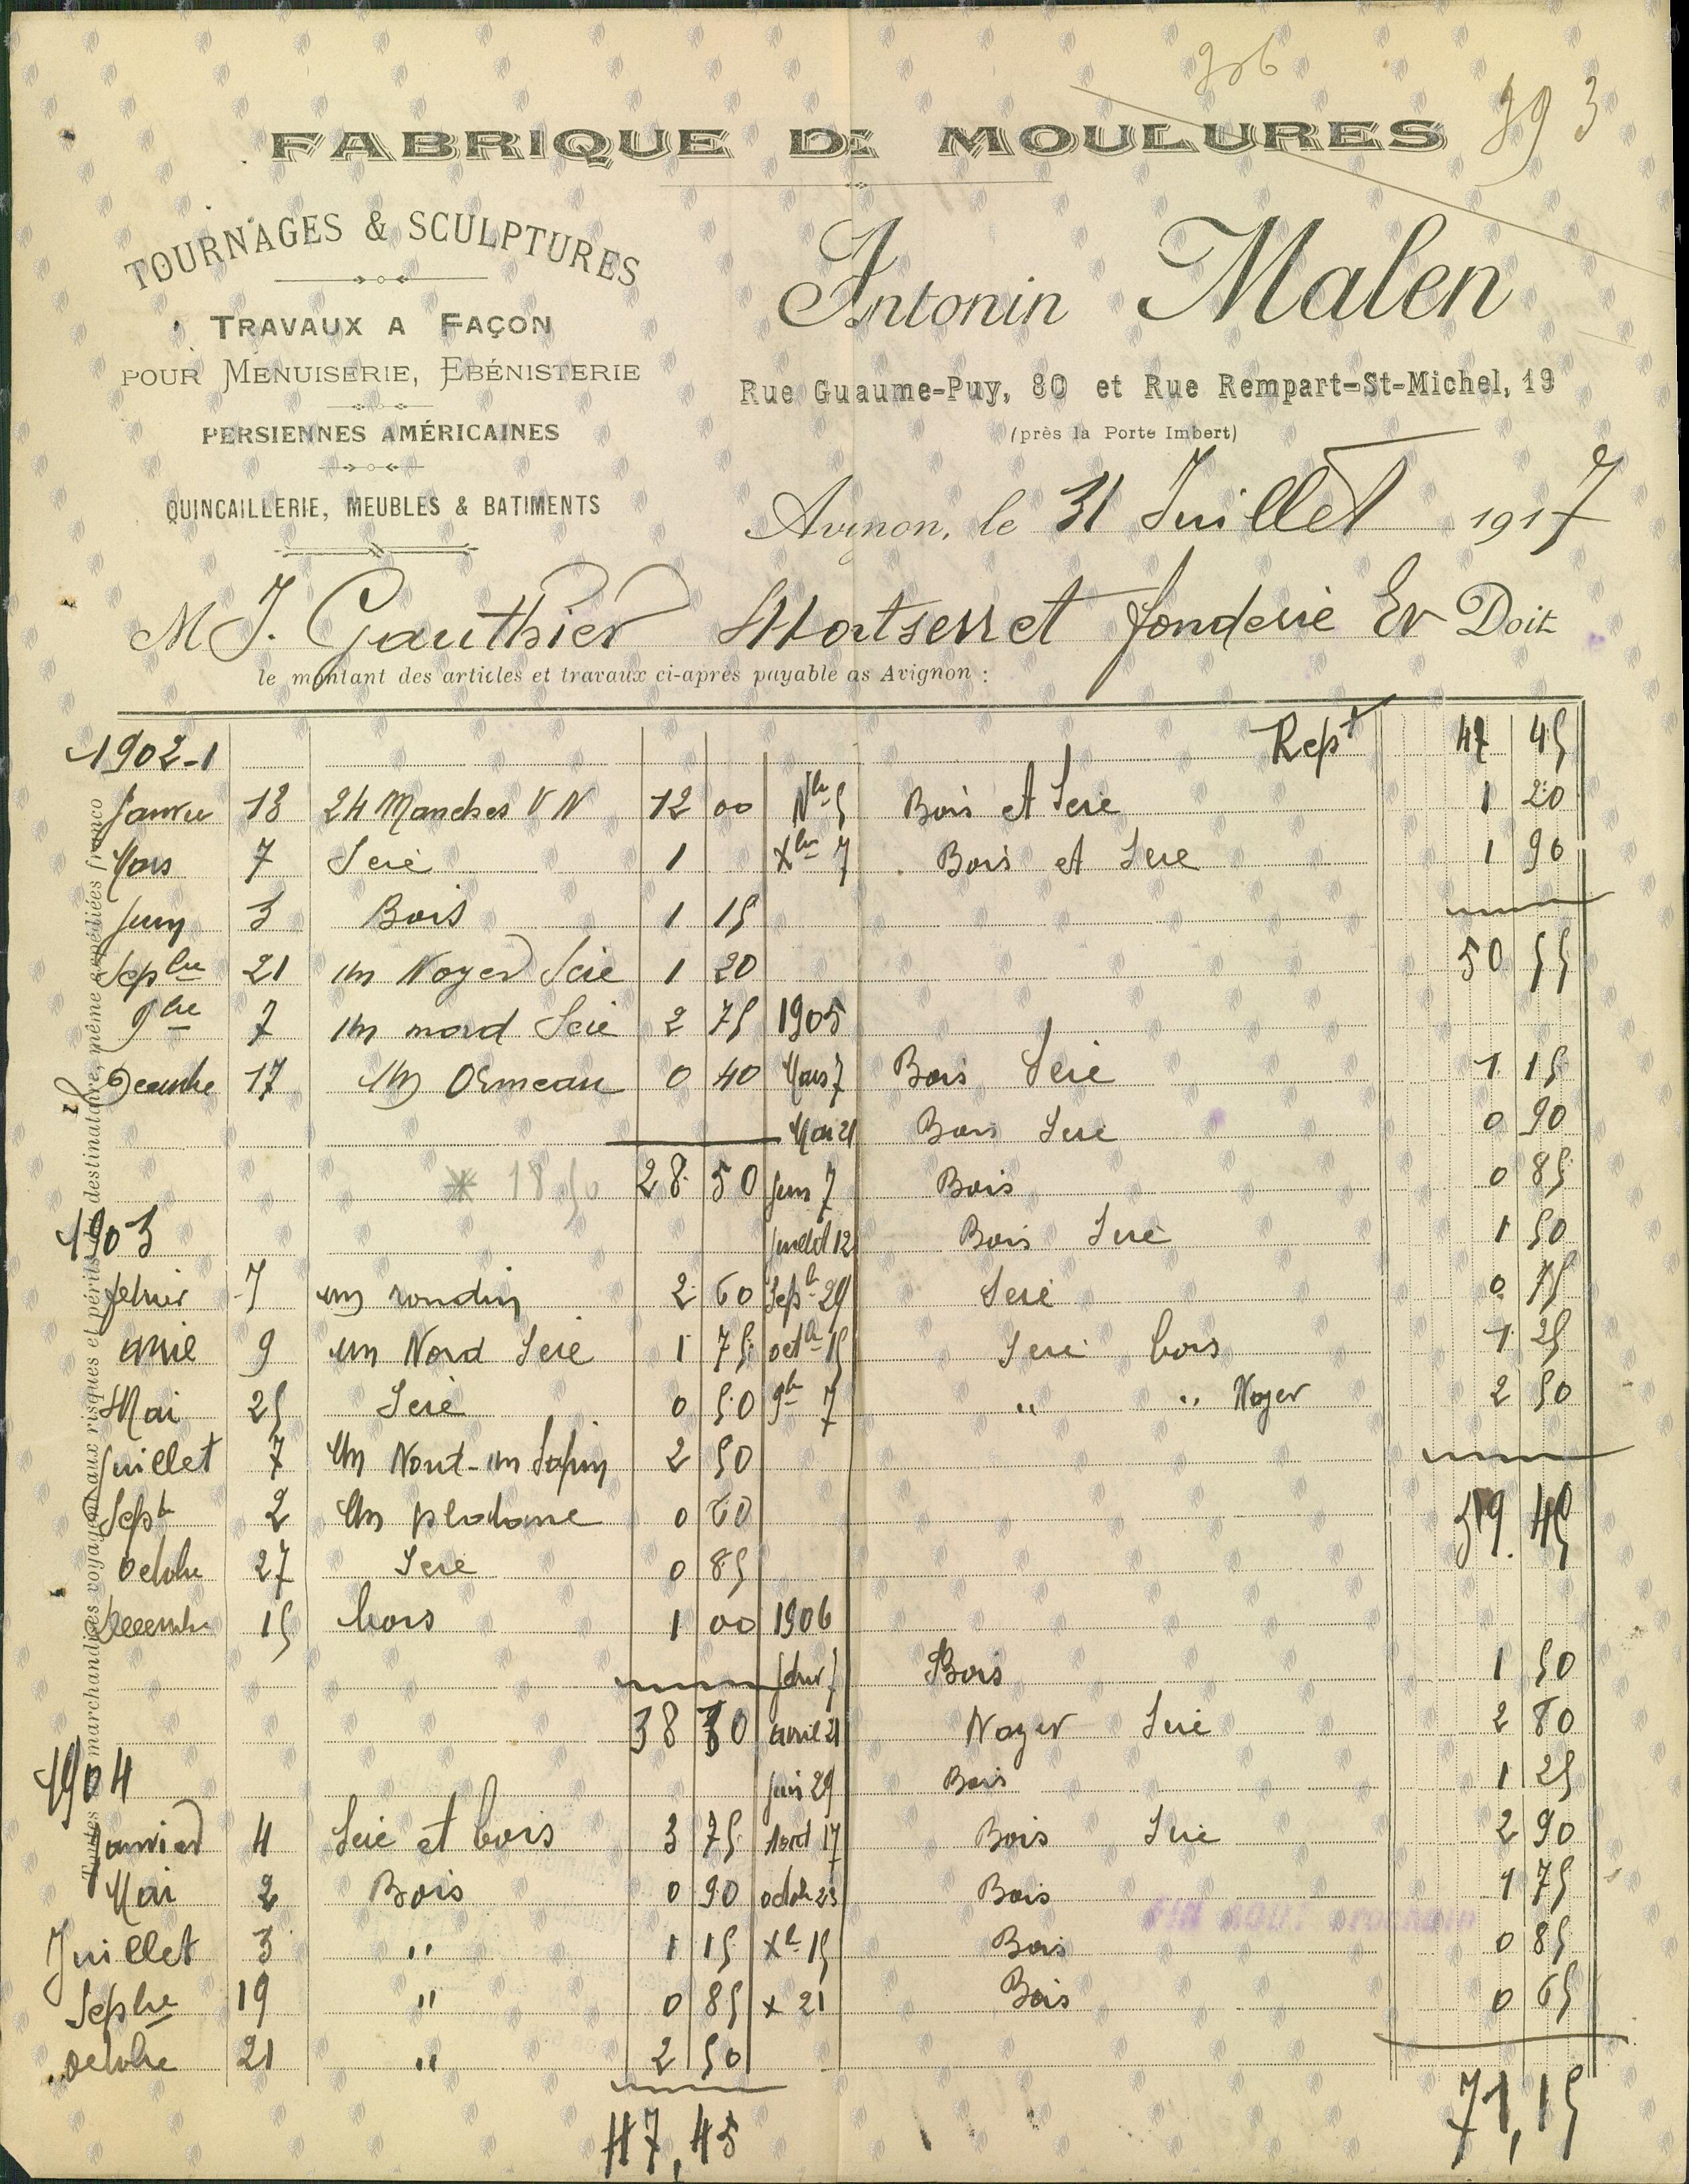 306
393
FABRIQUE DE MOULURES
TOURNAGES & SCULPTURES
TRAVAUX A FAÇON
POUR MENUISERIE, EBÉNISTERIE
PERSIENNES AMÉRICAINES
QUINCAILLERIE, MEUBLES & BATIMENTS
Antonin Malen
Rue Guaume-Puy, 80 et Rue Rempart-St-Michel, 19
(près la Porte Imbert)
Avignon, le 31 Juillet 1917
M J. Gauthier fonderie Doit
le montant des articles et travaux ci-après payable as Avignon :
Toutes marchandises voyagent aux risques et périls destinataire, même expédiées franco
1902-1
Janvier 13 24 Manches V N 12 00
Mars 7 Scie 1
Juin 3 Bois 1 15
Sepbre 21 un Noyer Scie 1 20
9bre 7 un nord Scie 2 75
Decembre 17 un Ormeau 0 40
28 50
* 18 50
1903
fevrier 7 un rondin 2 60
avril 9 un Nord Scie 1 75
Mai 25 Scie 0 50
Juillet 7 un Nord - un Sapin 2 50
Sept 2 un platane 0 60
Octobre 27 Scie 0 85
Decembre 15 bois 1 00
38 30
1904
Janvier 4 Scie et bois 3 75
Mai 2 Bois 0 90
Juillet 3 " 1 15
Sepbre 19 " 0 85
octobre 21 " 2 50
47,45
Rept 47 45
Nbre 5 Bois et Scie 1 20
Xbre 7 Bois et Scie 1 90
50 55
1905
Mars 7 Bois Scie 1 15
Mai 21 Bois Scie 0 90
Juin 7 Bois 0 85
Juillet 12 Bois Scie 1 50
Sept 29 Scie 0 75
octb 15 Scie bois 1 25
9b 7 " " Noyer 2 50
59 45
1906
fevr 7 Bois 1 50
avril 21 Noyer Scie 2 80
Juin 29 Bois 1 25
Aout 17 Bois Scie 2 90
octob 23 Bois 1 75
FIN AOUT prochain
Xb 15 Bois 0 85
X 21 Bois 0 65
71,15